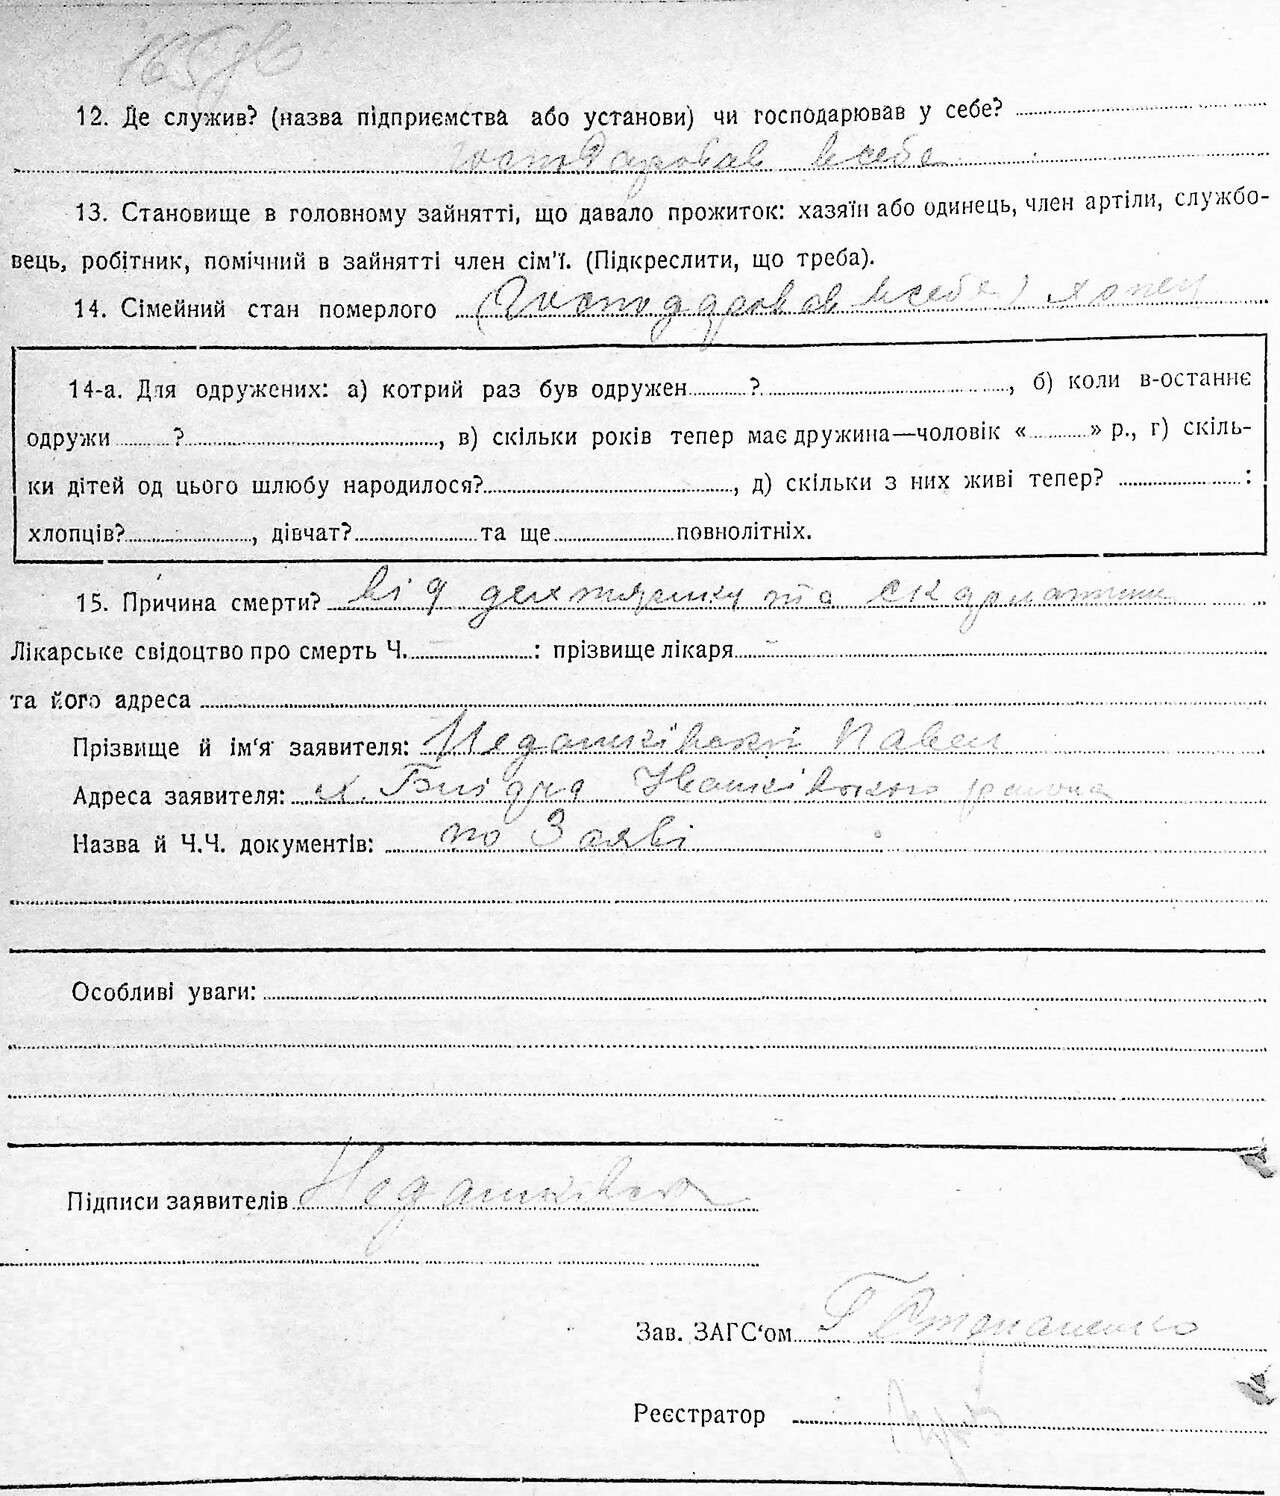 12. Де служив? (назва підприємства або установи) чи господарював у себе?
господаровав всебе
13. Становище в головному зайнятті, що давало прожиток: хазяїн або одинець, член артіли, службо-
вець, робітник, помічний в зайнятті член сім'ї. (Підкреслити, що треба).
14. Сімейний стан померлого (Господаровав всебе)
14-а. Для одружених: а) котрий раз був одружен ?, б) коли в-останнє
одружи ?, в) скільки років тепер має дружина—чоловік « » р., г) скіль-
ки дітей од цього шлюбу народилося?, д) скільки з них живі тепер? :
хлопців?, дівчат? та ще повнолітніх.
15. Причина смерти? від та скарлатини
Лікарське свідоцтво про смерть Ч. : прізвище лікаря
та його адреса
Прізвище й ім'я заявителя: Недашківський Павел
Адреса заявителя: Івашківського района
Назва й Ч.Ч. документів: по Заяві
Особливі уваги:
Підписи заявителів
Зав. ЗАГС'ом
Реєстратор